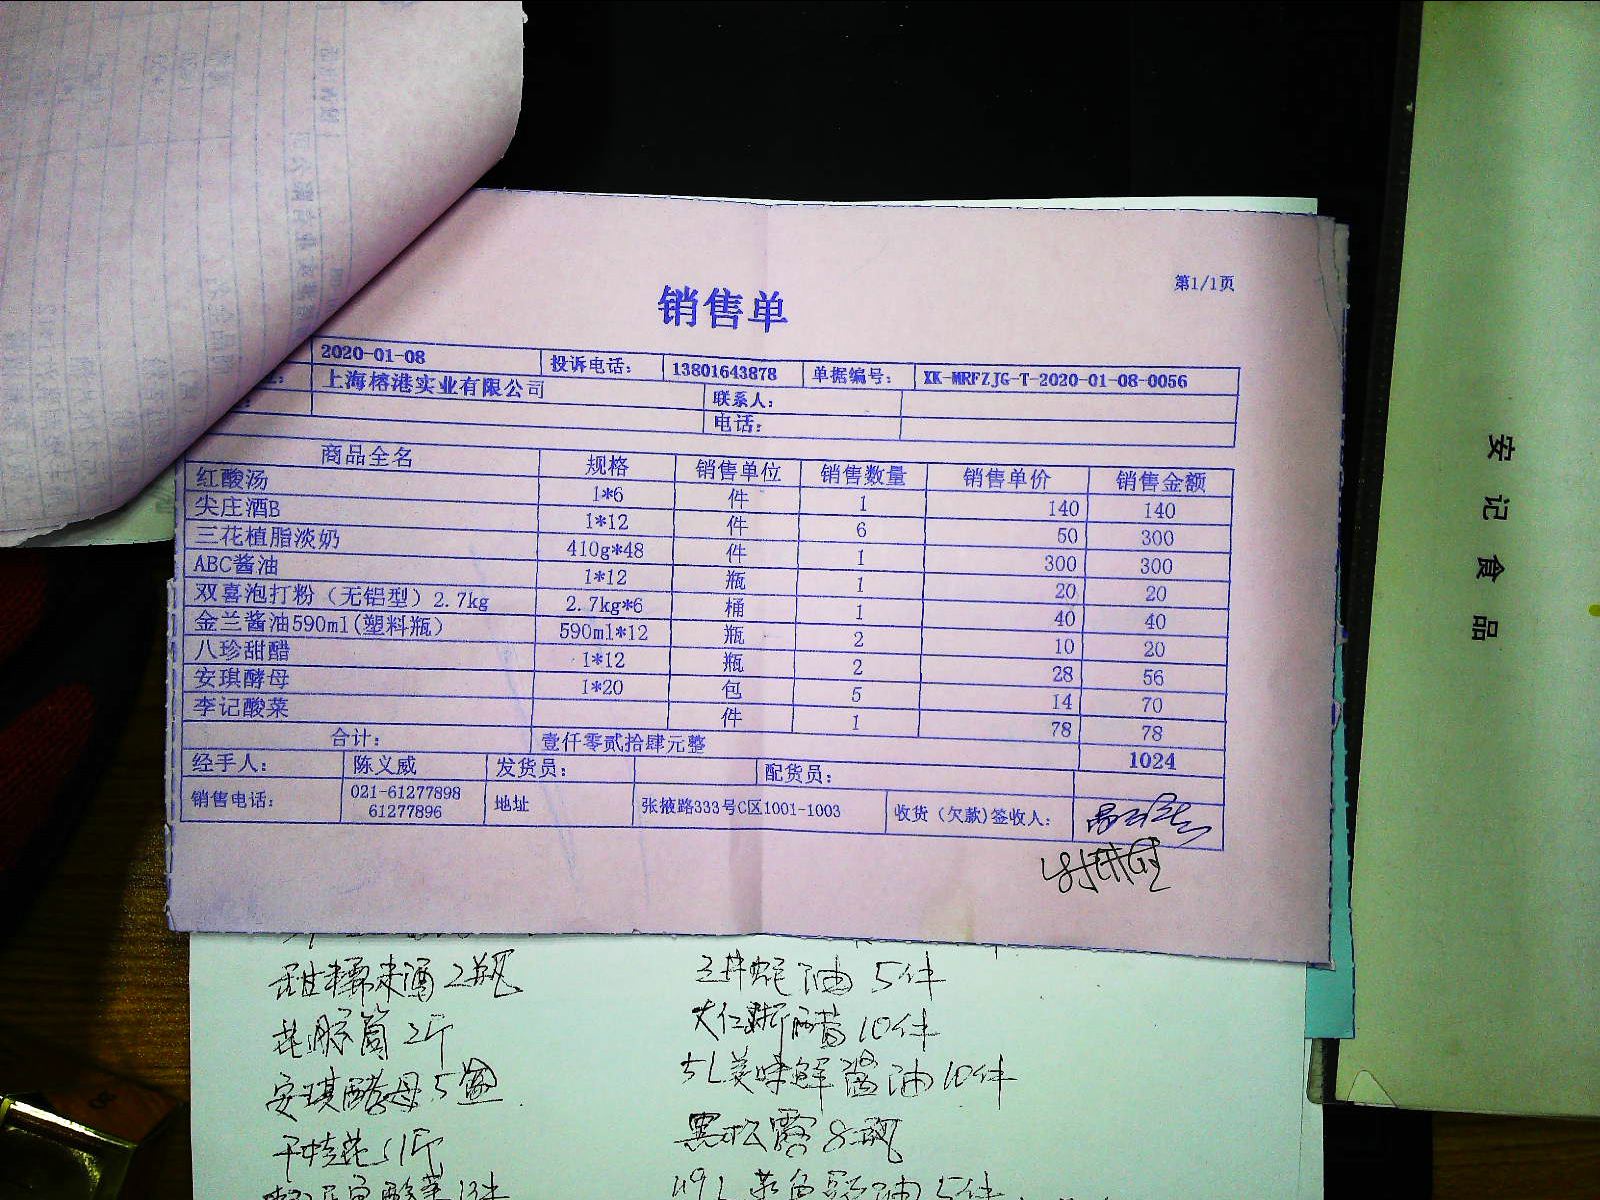 第1/1页
销售单
2020-01-08 投诉电话: 13801643878 单据编号: XK-MRFZJG-T-2020-01-08-0056
上海榕港实业有限公司 联系人:
电话:
商品全名 规格 销售单位 销售数量 销售单价 销售金额
红酸汤 1*6 件 1 140 140
尖庄酒B 1*12 件 6 50 300
三花植脂淡奶 410g*48 件 1 300 300
ABC酱油 1*12 瓶 1 20 20
双喜泡打粉（无铝型）2.7kg 2.7kg*6 桶 1 40 40
金兰酱油590ml(塑料瓶） 590ml*12 瓶 2 10 20
八珍甜醋 1*12 瓶 2 28 56
安琪酵母 1*20 包 5 14 70
李记酸菜 件 1 78 78
合计: 壹仟零贰拾肆元整 1024
经手人: 陈义威 发货员: 配货员:
销售电话: 021-61277898 61277896 地址 张掖路333号C区1001-1003 收货（欠款)签收人:
甜糯米酒 2瓶
2斤
安琪酵母 5
干桂花 1斤
油 5件
大红浙醋 10件
美味鲜酱油 10件
黑松露 8瓶
安记食品